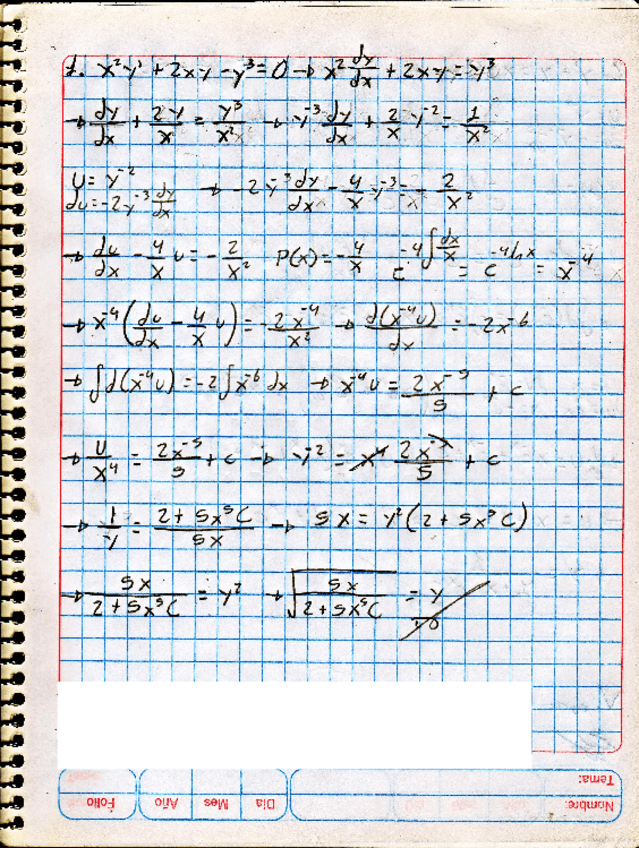 1. x²y' + 2xy - y³ = 0 → x² dy/dx + 2xy = y³
→ dy/dx + 2y/x = y³/x² → y⁻³ dy/dx + 2/x y⁻² = 1/x²
u = y⁻² → -2y⁻³ dy/dx - 4/x y⁻³ = - 2/x²
du = -2y⁻³ dy/dx
→ du/dx - 4/x u = - 2/x² P(x) = - 4/x e^(-4∫dx/x) = e^(-4lnx) = x⁻⁴
→ x⁻⁴ (du/dx - 4/x u) = -2x⁻⁴/x² → d(x⁻⁴u)/dx = -2x⁻⁶
→ ∫d(x⁻⁴u) = -2∫x⁻⁶ dx → x⁻⁴u = 2x⁻⁵/5 + c
→ u/x⁴ = 2x⁻⁵/5 + c → y⁻² = x⁴ 2x⁻⁵/5 + c
→ 1/y = 2 + 5x⁵C/5x → 5x = y²(2 + 5x⁵C)
→ 5x/2 + 5x⁵C = y² → √(5x/2 + 5x⁵C) = y
Folio Año Mes Día
Tema:
Nombre: